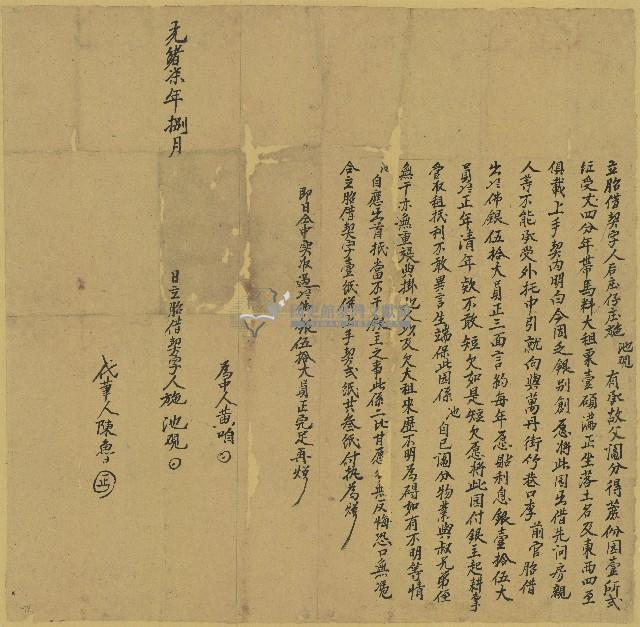 立胎借契字人后庄仔庄施池硯有承故父鬮分得蔗份園壹所弍
紅受丈四分年帶馬料大租粟壹碩滿正坐落土名及東西四至
俱載上手契內明白今因乏銀別創愿將此園出借先問房親
人等不能承受外托中引就向與萬丹街竹巷口李前官胎借
出佛銀伍拾大員正三面言約每年愿貼利息銀壹拾伍大
員正年清年款不敢短欠如是短欠愿將此園付銀主起耕掌
管收租抵利不敢異言生端保此園係池自己鬮分物業與叔兄弟侄
無干亦無重張典掛他人以及欠大租來歷不明為碍如有不明等情
池自應出首抵當不干銀主之事此係二比甘愿各無反悔恐口無憑
合立胎借契字壹紙併上手契弍紙共叁紙付執為炤
即日仝中實收過佛銀伍拾大員正完足再炤
為中人黃咱
日立胎借契字人施池硯
代筆人陳魯
光緒柒年捌月